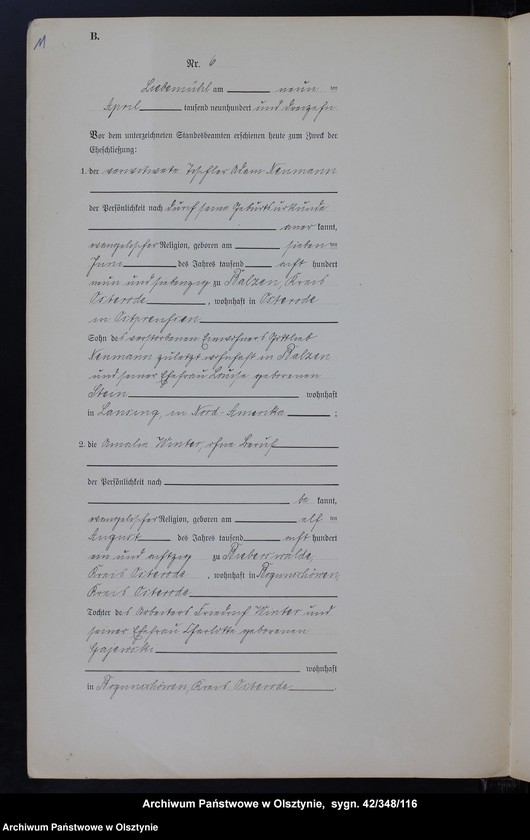 11
B.
Nr. 6
Liebemühl am neun ten
April tausend neunhundert und dreizehn
Vor dem unterzeichneten Standesbeamten erschienen heute zum Zweck der
Eheschließung:
1. der verwitwete Tischler Adam Neumann
der Persönlichkeit nach durch seine Geburtsurkunde
aner kannt,
evangelischer Religion, geboren am sieben ten
Juni des Jahres tausend acht hundert
neun und siebenzig zu Balzen, Kreis
Osterode, wohnhaft in Osterode
in Ostpreußen
Sohn des verstorbenen Einwohners Gottlieb
Neumann zuletzt wohnhaft in Balzen
und seiner Ehefrau Louise geborenen
Stein wohnhaft
in Lansing, in Nord-Amerika ;
2. die Amalie Winter, ohne Beruf
der Persönlichkeit nach
be kannt,
evangelischer Religion, geboren am elf ten
August des Jahres tausend acht hundert
ein und achtzig zu Bieberswalde,
Kreis Osterode, wohnhaft in
Kreis Osterode
Tochter des Arbeiters Friedrich Winter und
seiner Ehefrau Charlotte geborenen
Gajewski
wohnhaft
in Kreis Osterode.
Archiwum Państwowe w Olsztynie, sygn. 42/348/116
Archiwum Państwowe w Olsztynie